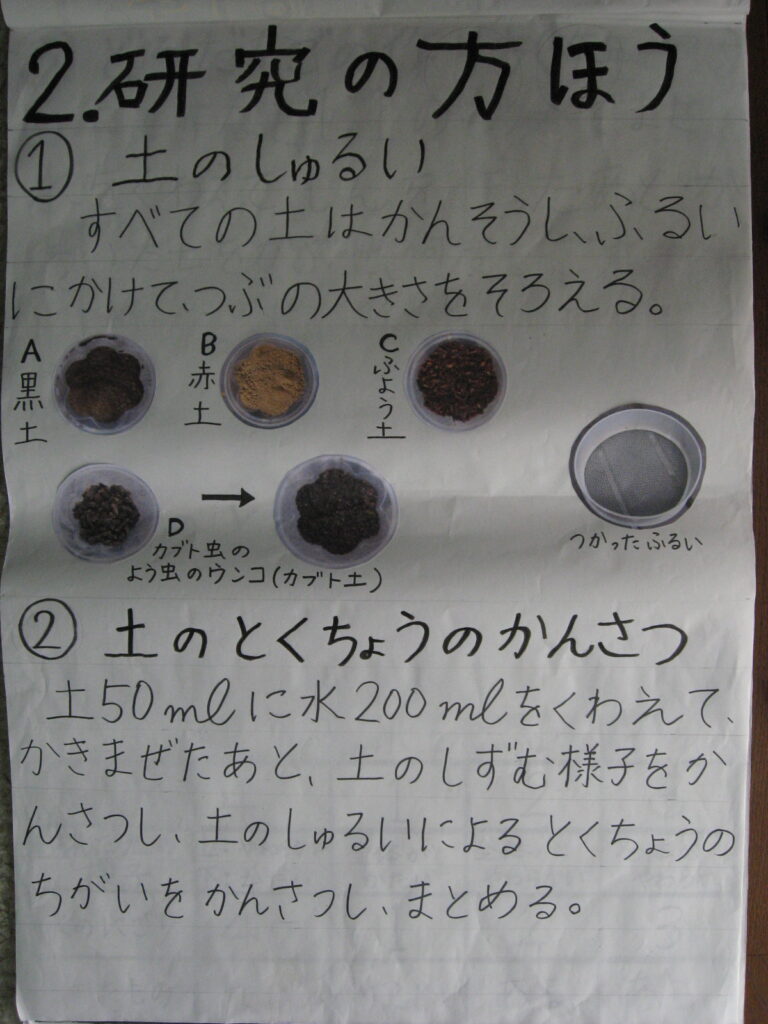 2.研究の方ほう
① 土のしゅるい
すべての土はかんそうし、ふるい
にかけて、つぶの大きさをそろえる。
A
黒土
B
赤土
C
ふよう土
つかったふるい
→
D
カブト虫の
よう虫のウンコ(カブト土)
② 土のとくちょうのかんさつ
土50mlに水200mlをくわえて、
かきまぜたあと、土のしずむ様子をか
んさつし、土のしゅるいによるとくちょうの
ちがいをかんさつし、まとめる。